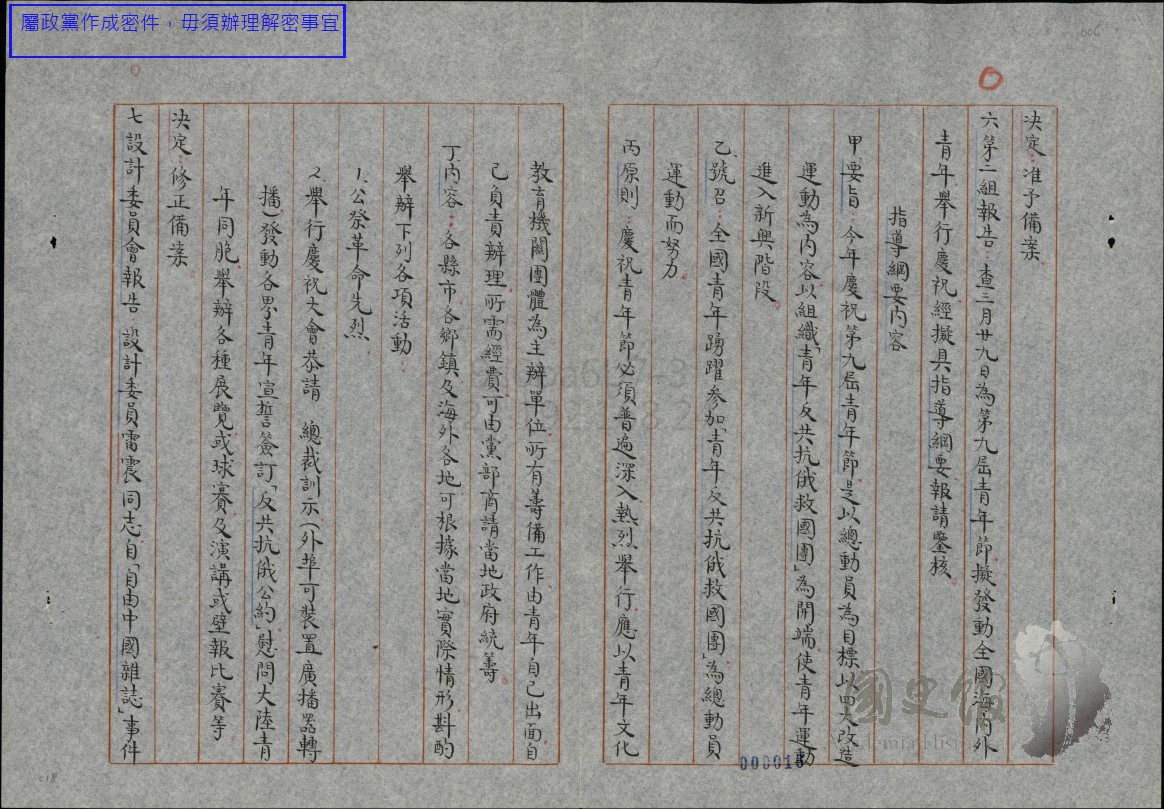 屬政黨作成密件，毋須辦理解密事宜
006
決定：准予備案
六第二組報告：查三月廿九日為第九屆青年節擬發動全國海內外
青年舉行慶祝經擬具指導綱要報請鑒核。
指導綱要內容
甲、要旨：今年慶祝第九屆青年節是以總動員為目標以四大改造
運動為內容以組織「青年反共抗俄救國團」為開端使青年運動
進入新興階段。
乙、號召：全國青年踴躍參加「青年反共抗俄救國團」為總動員
運動而努力。
丙、原則：慶祝青年節必須普遍深入熱烈舉行應以青年文化
教育機關團體為主辦單位所有籌備工作由青年自己出面自
己負責辦理所需經費可由黨部商請當地政府統籌。
丁、內容：各縣市各鄉鎮及海外各地可根據當地實際情形斟酌
舉辦下列各項活動：
1.公祭革命先烈。
2.舉行慶祝大會恭請　總裁訓示（外埠可裝置廣播器轉
播）發動各界青年宣誓簽訂「反共抗俄公約」慰問大陸青
年同胞舉辦各種展覽或球賽及演講或壁報比賽等。
決定：修正備案
七設計委員會報告：設計委員雷震同志自「自由中國雜誌」事件
國史館
Academia Historica
000018
018